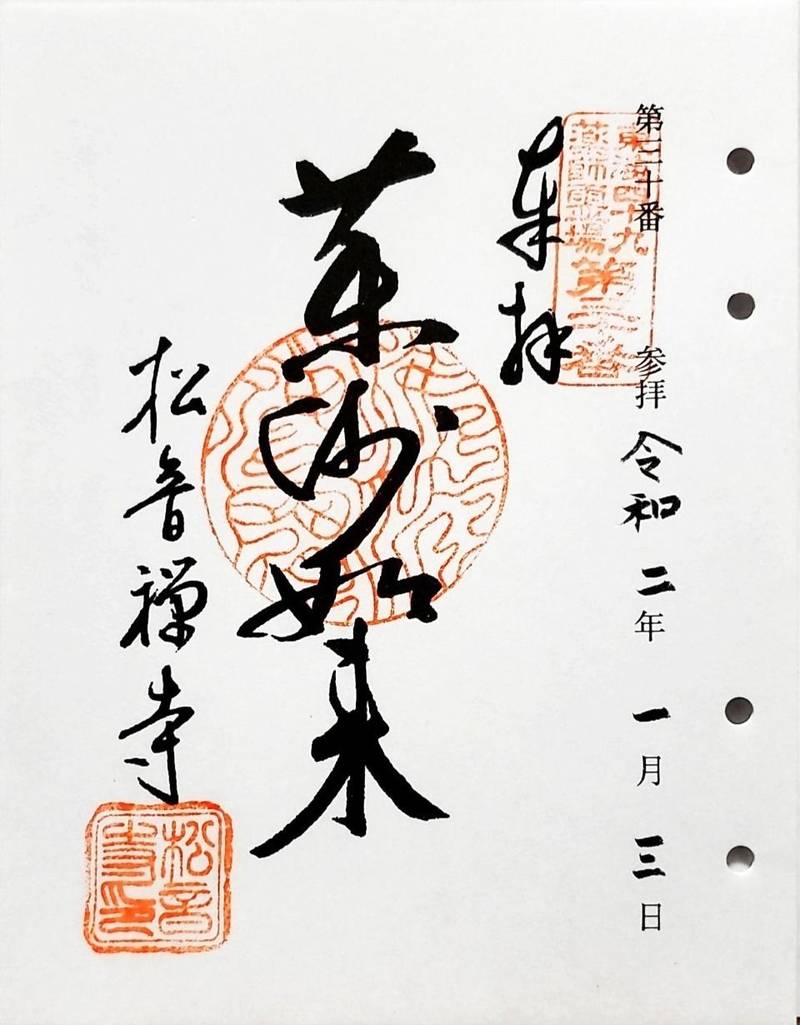 第三十番 参拝 令和二年一月三日
東海四十九
薬師霊場第三十番
奉拝
薬師如来
松音禅寺
松音
寺印